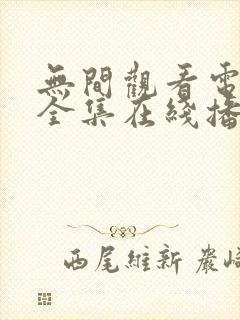 無間觀看電
全集在綫播
西尾維新 嚴崎